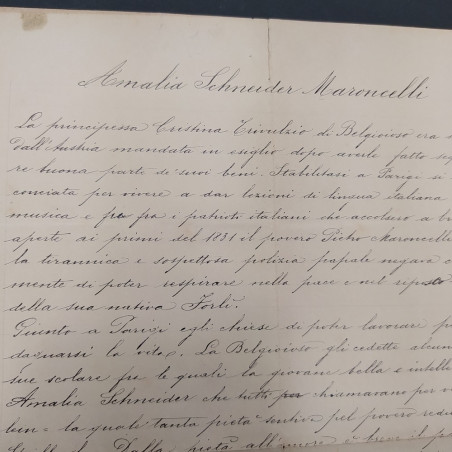 Amalia Schneider Maroncelli
La principessa Cristina Trivulzio di Belgioioso era
Dall'Austria mandata in esiglio dopo averle fatto
re buona parte di suoi beni. Stabilitasi a Parigi si
conciata per vivere a dar lezioni di lingua italiana
musica e pra fra i patrioti italiani che accolsero a
aperte ai primi del 1831 il povero Pietro Maroncelli
la tirannica e sospettosa polizia papale negava
mente di poter respirare nella pace e nel riposo
della sua nativa Forlì.
Giunto a Parigi egli chiese di poter lavorare
dagnarsi la vita. La Belgioioso gli cedette
sue scolare fra le quali la giovane bella e
Amalia Schneider che tutti chiamavano per
la quale tanta pietà sentiva pel povero
Dalla pietà all'amore è breve il